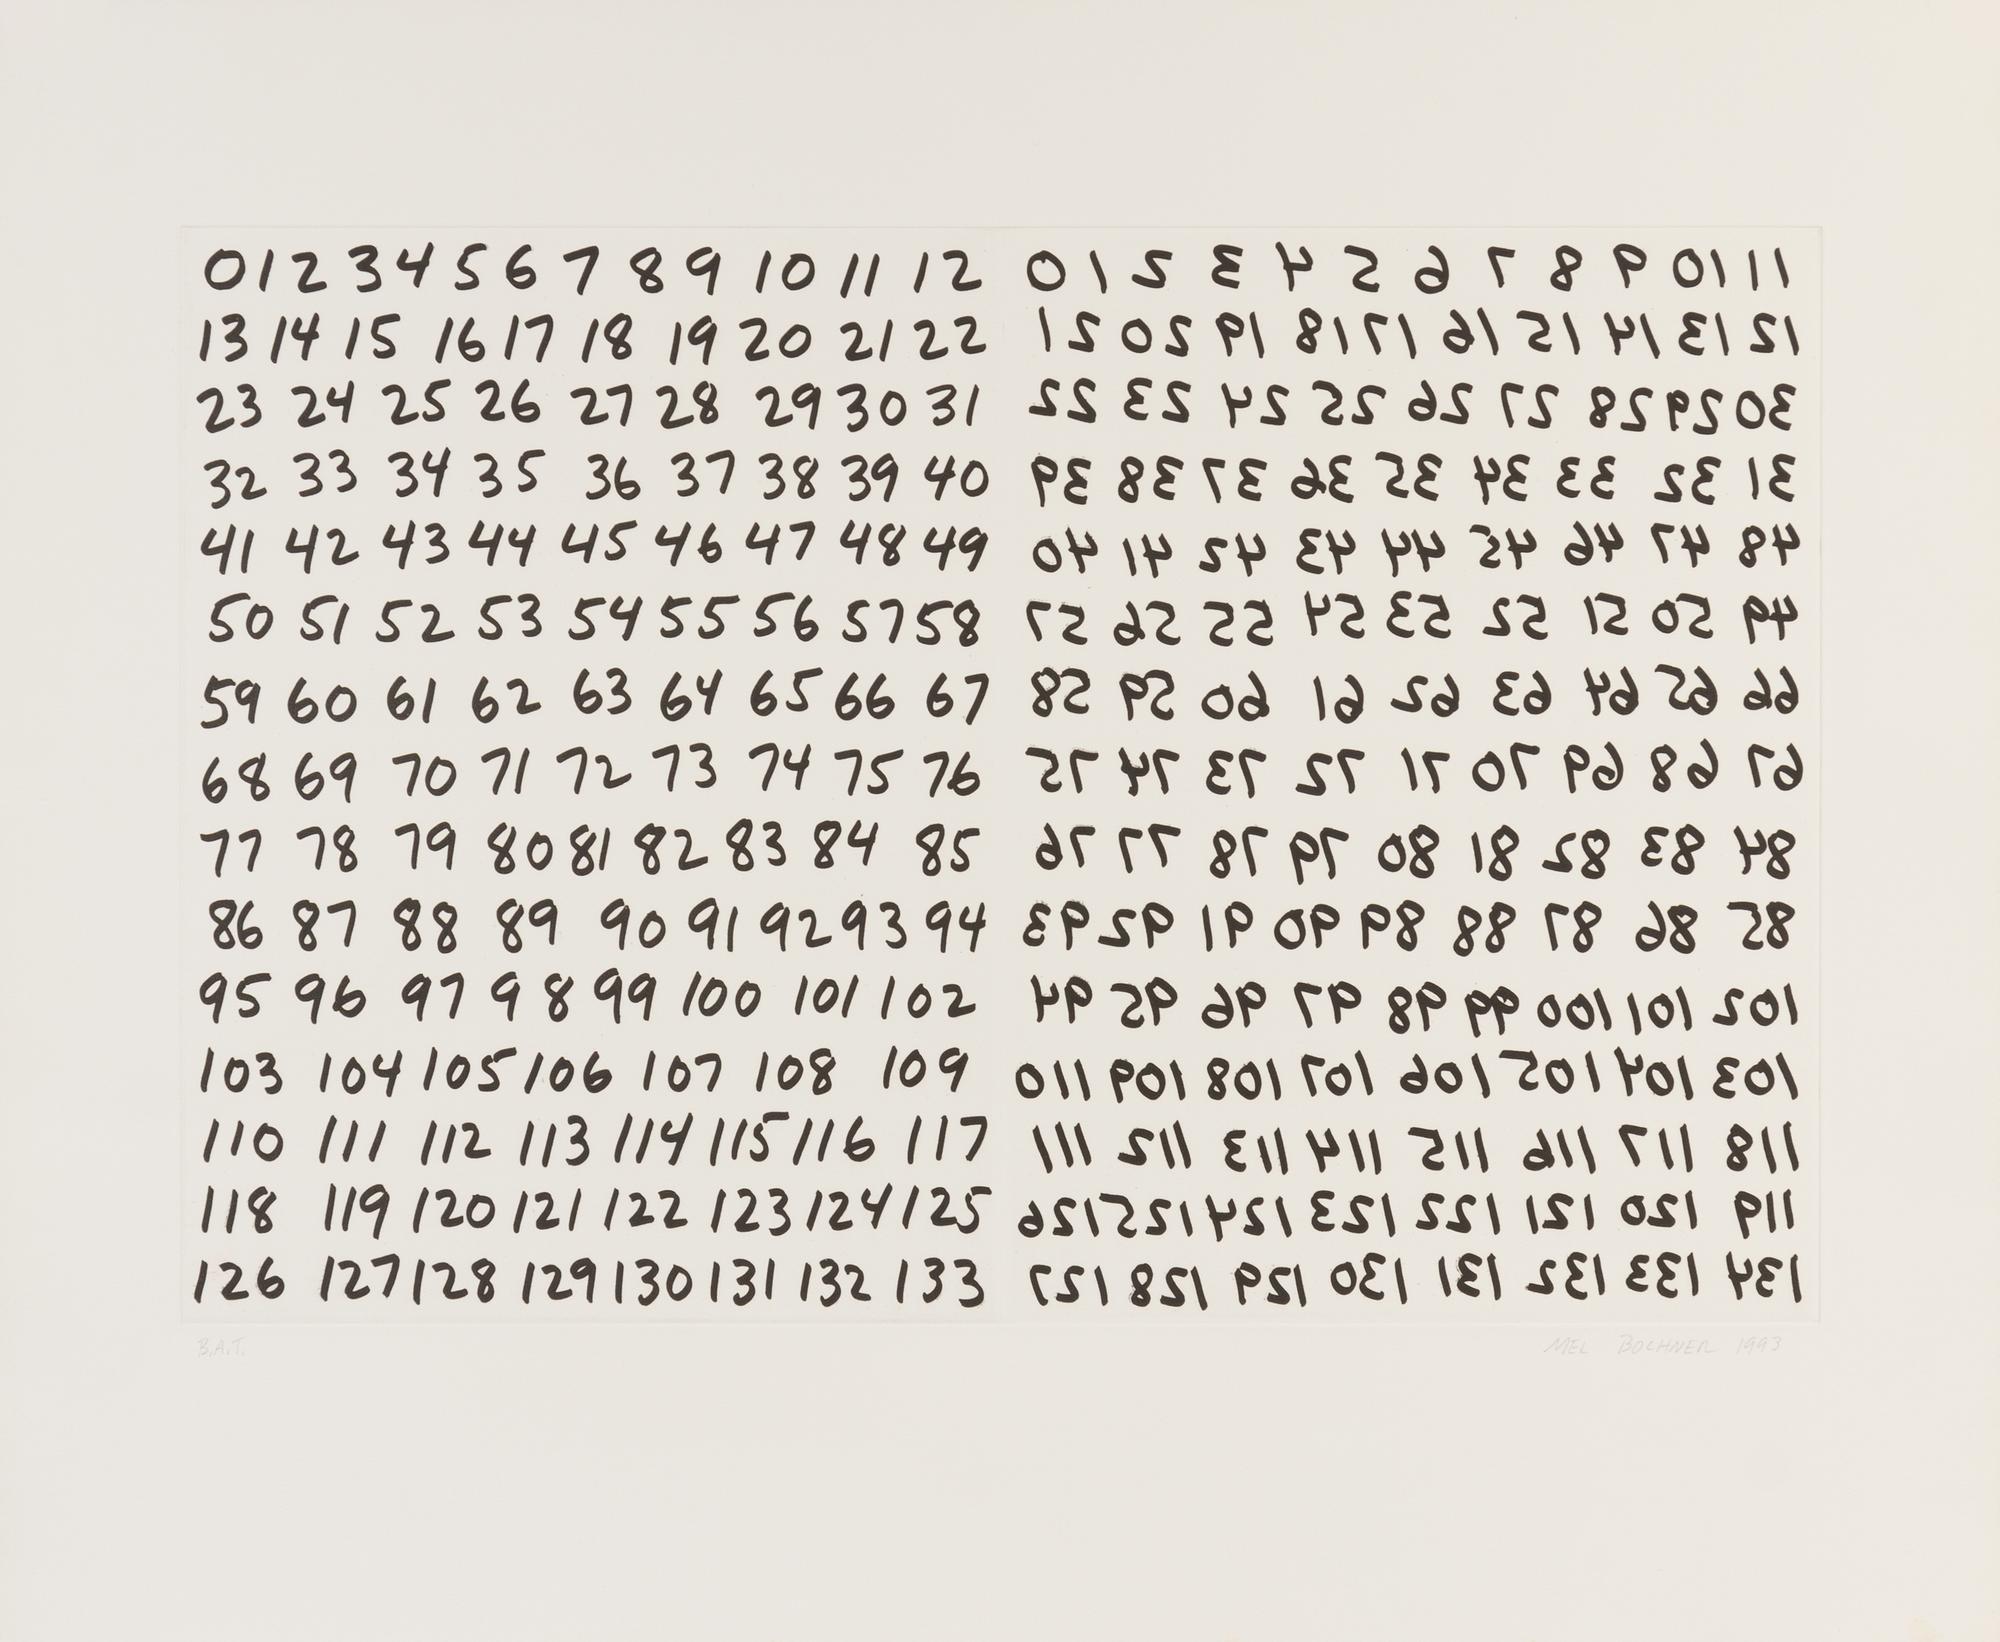 0 1 2 3 4 5 6 7 8 9 10 11 12 0 1 2 3 4 5 6 7 8 9 10 11
13 14 15 16 17 18 19 20 21 22 21 20 19 18 17 16 15 14 13 12
23 24 25 26 27 28 29 30 31 22 23 24 25 26 27 28 29 30
32 33 34 35 36 37 38 39 40 39 38 37 36 35 34 33 32 31
41 42 43 44 45 46 47 48 49 40 41 42 43 44 45 46 47 48
50 51 52 53 54 55 56 57 58 57 56 55 54 53 52 51 50 49
59 60 61 62 63 64 65 66 67 58 59 60 61 62 63 64 65 66
68 69 70 71 72 73 74 75 76 75 74 73 72 71 70 69 68 67
77 78 79 80 81 82 83 84 85 76 77 78 79 80 81 82 83 84
86 87 88 89 90 91 92 93 94 93 92 91 90 89 88 87 86 85
95 96 97 98 99 100 101 102 94 95 96 97 98 99 100 101 102
103 104 105 106 107 108 109 110 109 108 107 106 105 104 103
110 111 112 113 114 115 116 117 111 112 113 114 115 116 117 118
118 119 120 121 122 123 124 125 126 125 124 123 122 121 120 119
126 127 128 129 130 131 132 133 127 128 129 130 131 132 133 134
B.A.T. MEL BOCHNER 1993